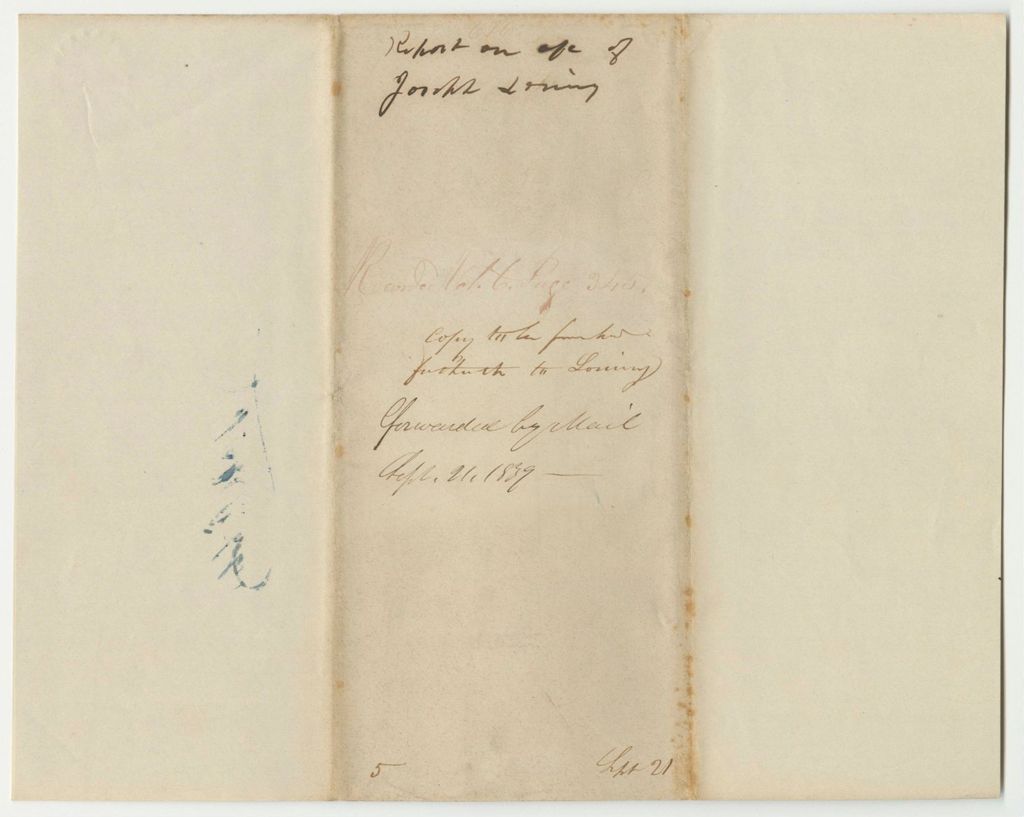 Report on ap of
Joseph Loring
Record Vol. 6. Page 345.
copy to be
to Loring
forwarded by Mail
Sept. 21. 1839 —
5
Sept 21